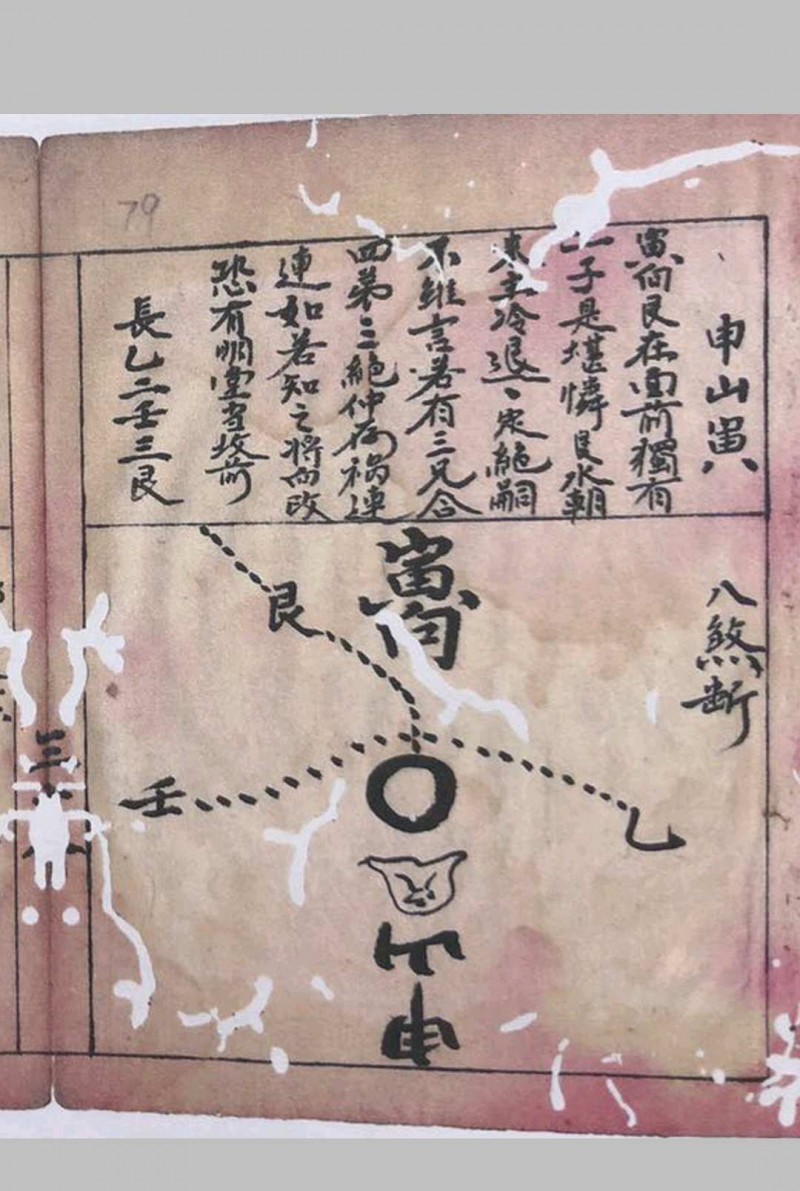 79
申山寅
寅向艮在面前獨有
二子是堪憐艮水朝
來主冷退、定絕嗣
不雖言若有三兄合
四第三絕仲房禍連
連如若知之將向改
恐有明堂玄坟前
長乙二壬三艮
八煞断
寅向
艮
壬
乙
穴
山
申
三